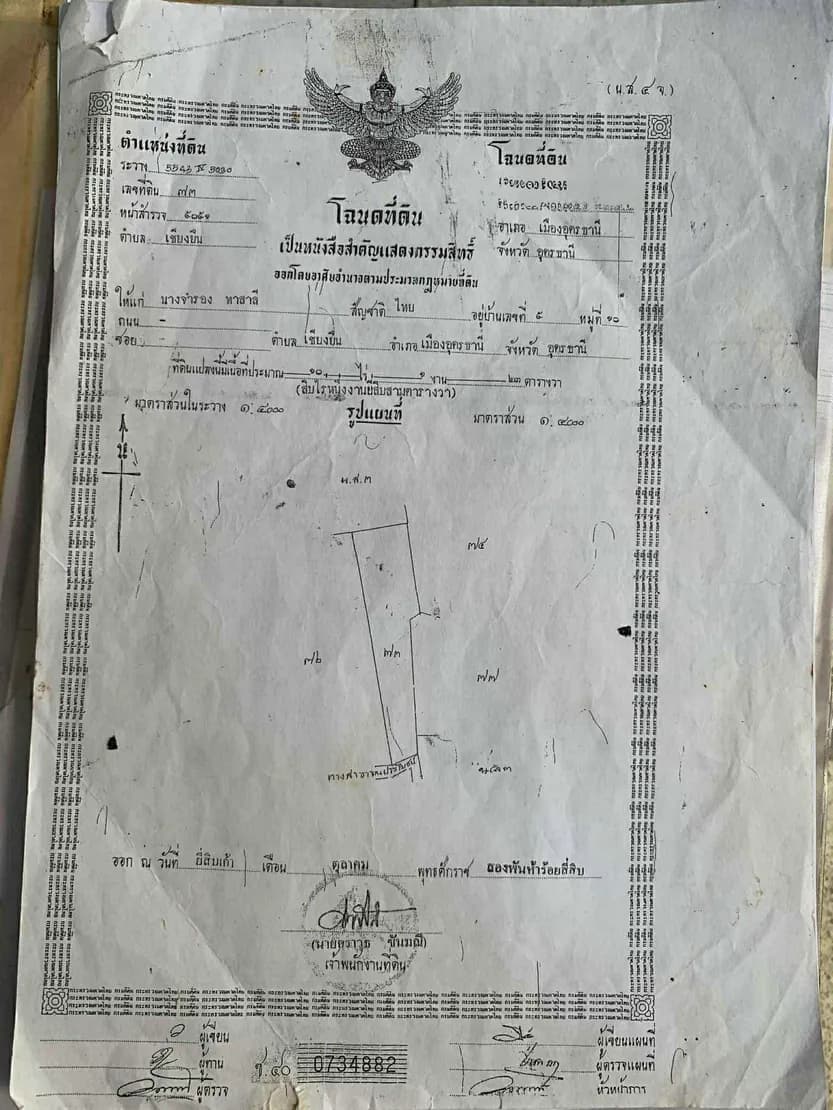 (น.ส.๔ จ.)
ตำแหน่งที่ดิน
ระวาง 5543 IV 5020
เลขที่ดิน ๗๓
หน้าสำรวจ ๕๐๕๑
ตำบล เชียงยืน
โฉนดที่ดิน
อำเภอ เมืองอุดรธานี
จังหวัด อุดรธานี
โฉนดที่ดิน
เป็นหนังสือสำคัญแสดงกรรมสิทธิ์
ออกโดยอาศัยอำนาจตามประมวลกฎหมายที่ดิน
ให้แก่ นางจำรอง ทาสาลี สัญชาติ ไทย อยู่บ้านเลขที่ ๕ หมู่ที่ ๑๐
ถนน -
ซอย - ตำบล เชียงยืน อำเภอ เมืองอุดรธานี จังหวัด อุดรธานี
ที่ดินแปลงนี้มีเนื้อที่ประมาณ ๑๐ ไร่ ๑ งาน ๒๓ ตารางวา
(สิบไร่หนึ่งงานยี่สิบสามตารางวา)
มาตราส่วนในระวาง ๑:๔๐๐๐ รูปแผนที่ มาตราส่วน ๑:๔๐๐๐
น
น.ส.๓
๗๕
๗๖
๗๓
๗๗
ทางสาธารณประโยชน์
น.ส.๓
ออก ณ วันที่ ยี่สิบเก้า เดือน ตุลาคม พุทธศักราช สองพันห้าร้อยสี่สิบ
เจ้าพนักงานที่ดิน
ผู้เขียน
ผู้เขียนแผนที่
ผู้ทาน
ผู้ตรวจแผนที่
0734882
ผู้ตรวจ
หัวหน้าการ